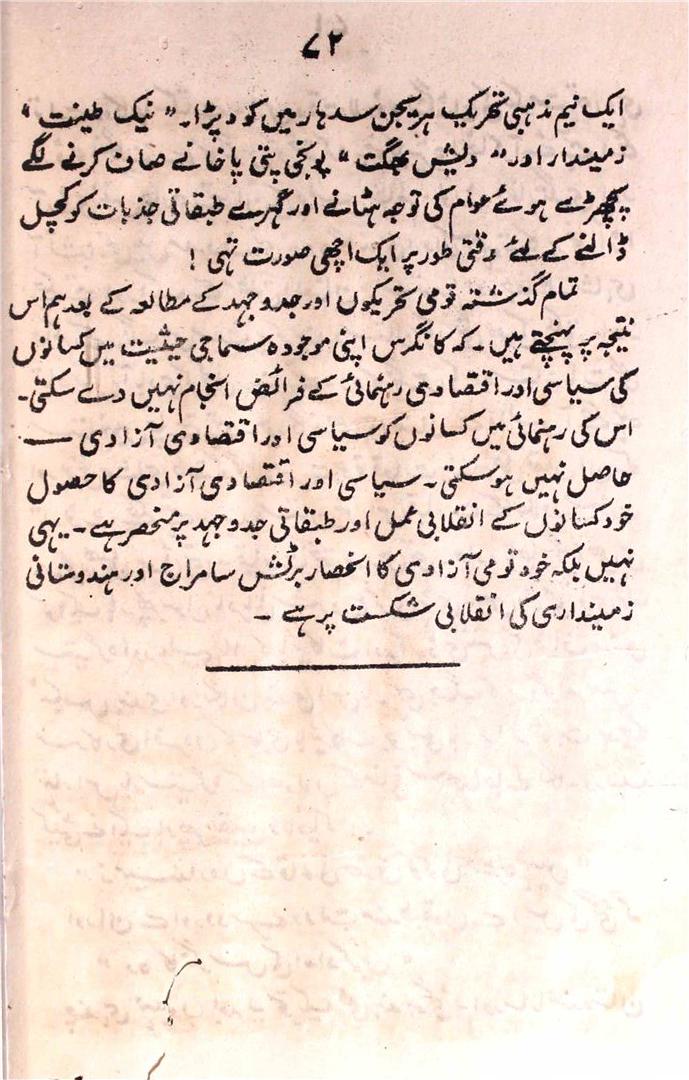 ۷۲
ایک نیم مذہبی تحریک ہریجن سدہار میں کود پڑا۔ " نیک طینت "
زمیندار اور " دلیش بھگت " پونجی پتی پاخانے صاف کرنے لگے
پچھڑے ہوئے عوام کی توجہ ہٹانے اور گہرے طبقاتی جذبات کو کچل
ڈالنے کے لئے وقتی طور پر ایک اچھی صورت تہی !
تمام گذشتہ قومی تحریکوں اور جدوجہد کے مطالعہ کے بعد ہم اس
نتیجہ پر پہنچتے ہیں۔ کہ کانگرس اپنی موجودہ سماجی حیثیت میں کسانوں
کی سیاسی اور اقتصادی رہنمائی کے فرائض انجام نہیں دے سکتی۔
اس کی رہنمائی میں کسانوں کو سیاسی اور اقتصادی آزادی —
حاصل نہیں ہوسکتی۔ سیاسی اور اقتصادی آزادی کا حصول
خود کسانوں کے انقلابی عمل اور طبقاتی جدوجہد پر منحصر ہے۔ یہی
نہیں بلکہ خود قومی آزادی کا انحصار برٹش سامراج اور ہندوستانی
زمینداری کی انقلابی شکست پر ہے ۔